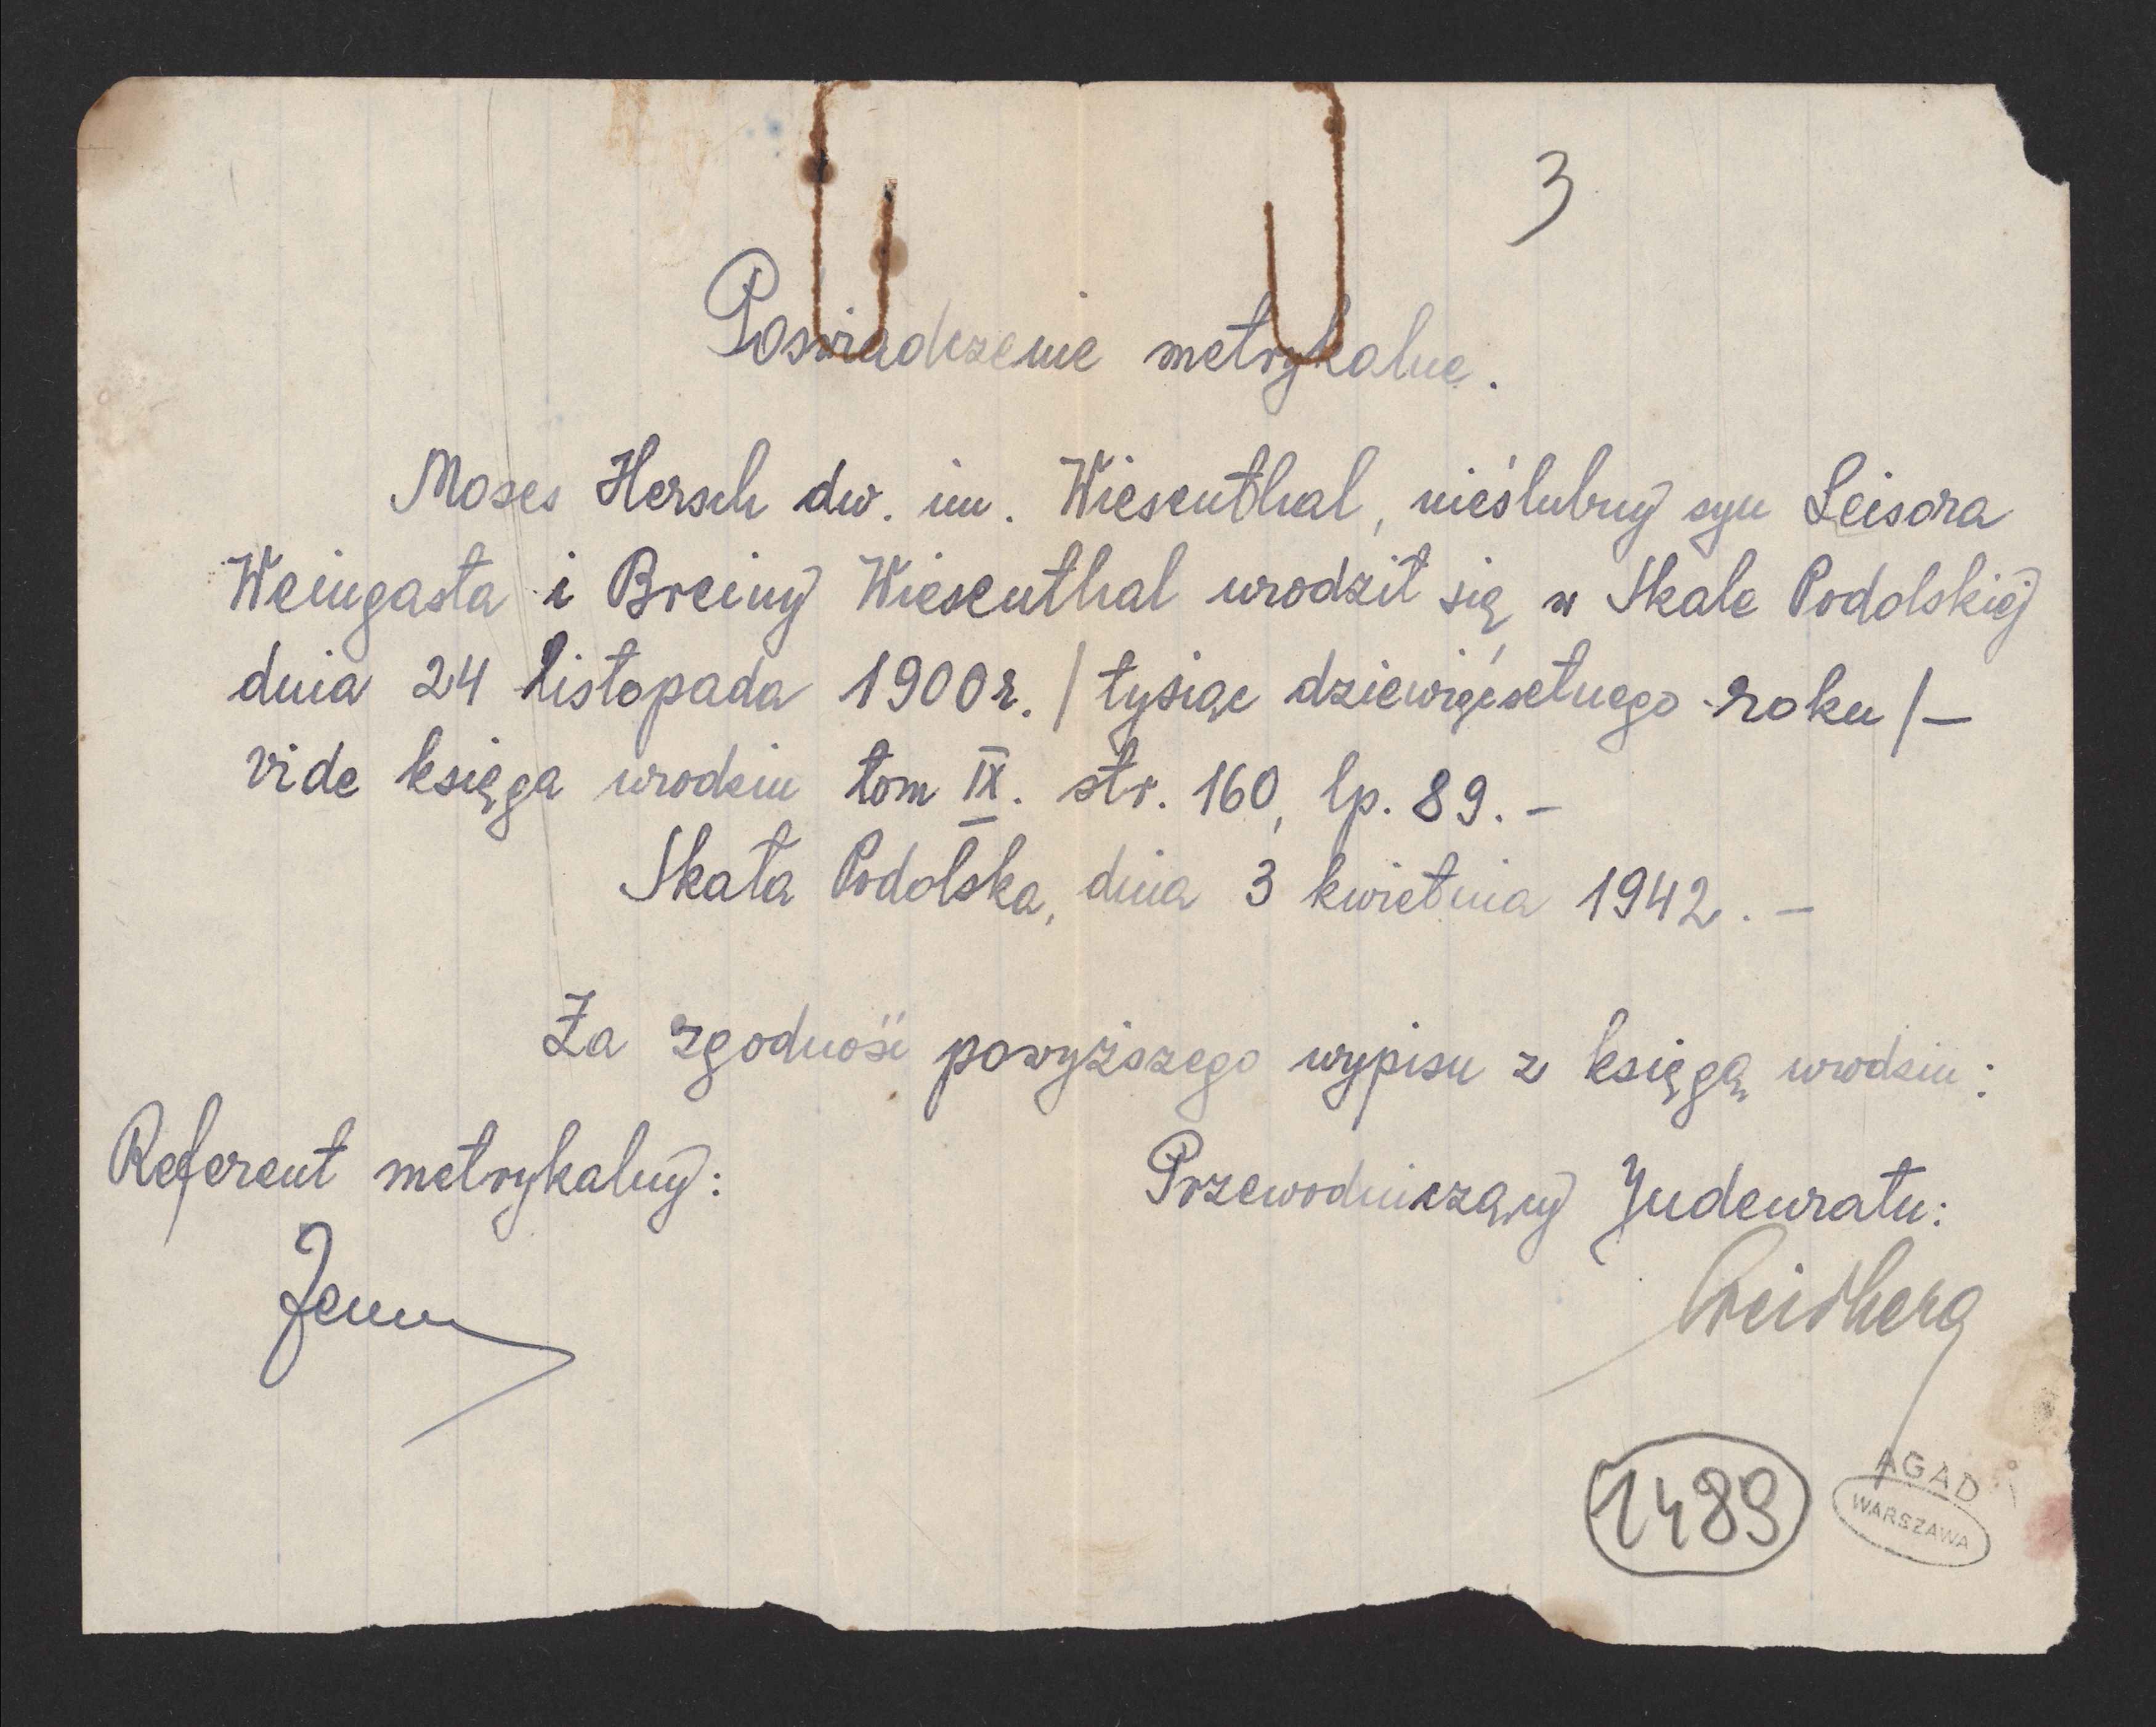 3
Poświadczenie metrykalne.
Moses Hersch dw. im. Wiesenthal, nieślubny syn Leisora
Weingasta i Breiny Wiesenthal urodził się w Skale Podolskiej
dnia 24 listopada 1900 r. / tysiąc dziewięćsetnego roku / —
vide księga urodzin tom IX. str. 160, lp. 89. —
Skała Podolska, dnia 3 kwietnia 1942. —
Za zgodność powyższego wypisu z księgą urodzin:
Referent metrykalny: Przewodniczący Judenratu:
1489
AGAD
WARSZAWA